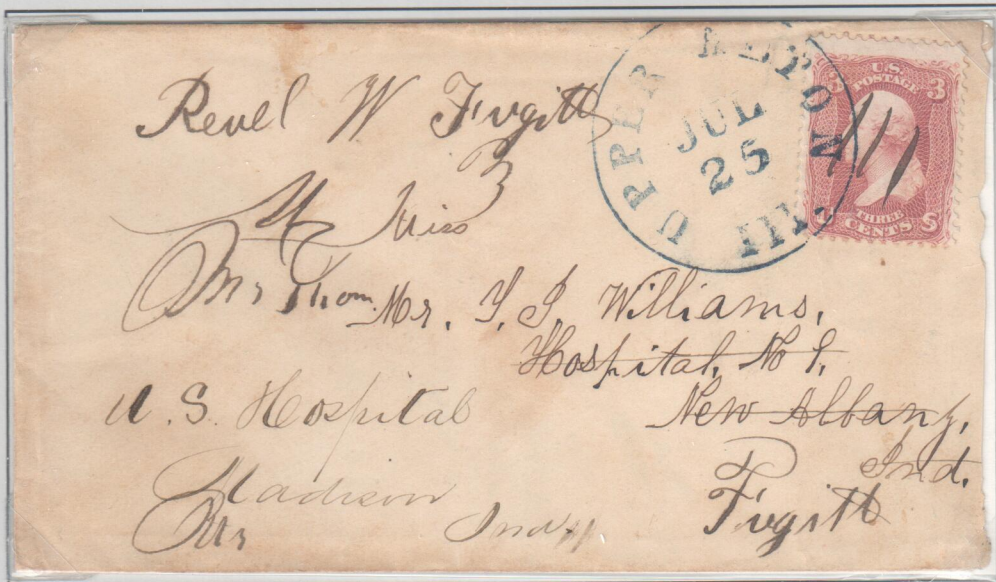 Revel W Fugitt
UPPER ALTON ILL.
JUL
25
U.S.
POSTAGE
3 3
THREE
CENTS
Miss
Mr Thom
Mr. Y. J. Williams,
Hospital, No 1,
New Albany,
Ind.
U. S. Hospital
Madison
Ind
Mr
Fugitt